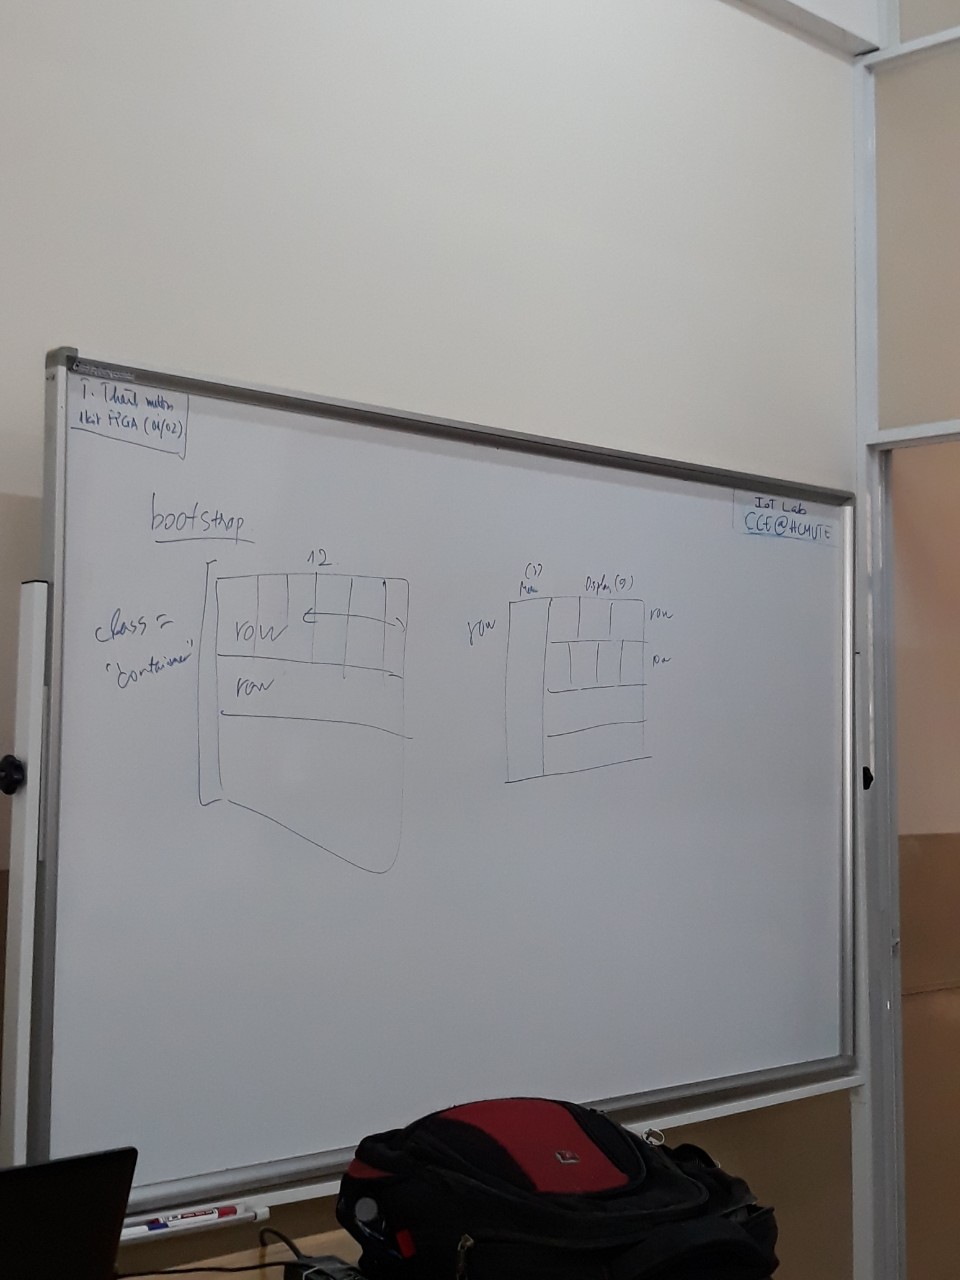 T. Thanh mượn
1 kit FPGA (01/02)
IoT Lab
CCE@HCMUTE
bootstrap
12
class =
"container"
row
row
(3)
Menu
Display (9)
row
row
row